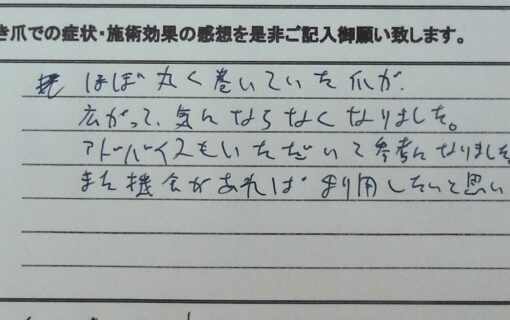 き爪での症状・施術効果の感想を是非ご記入御願い致します。
ほぼ丸く巻いていた爪が、
広がって、気にならなくなりました。
アドバイスもいただいて参考になりました
また機会があれば利用したいと思い